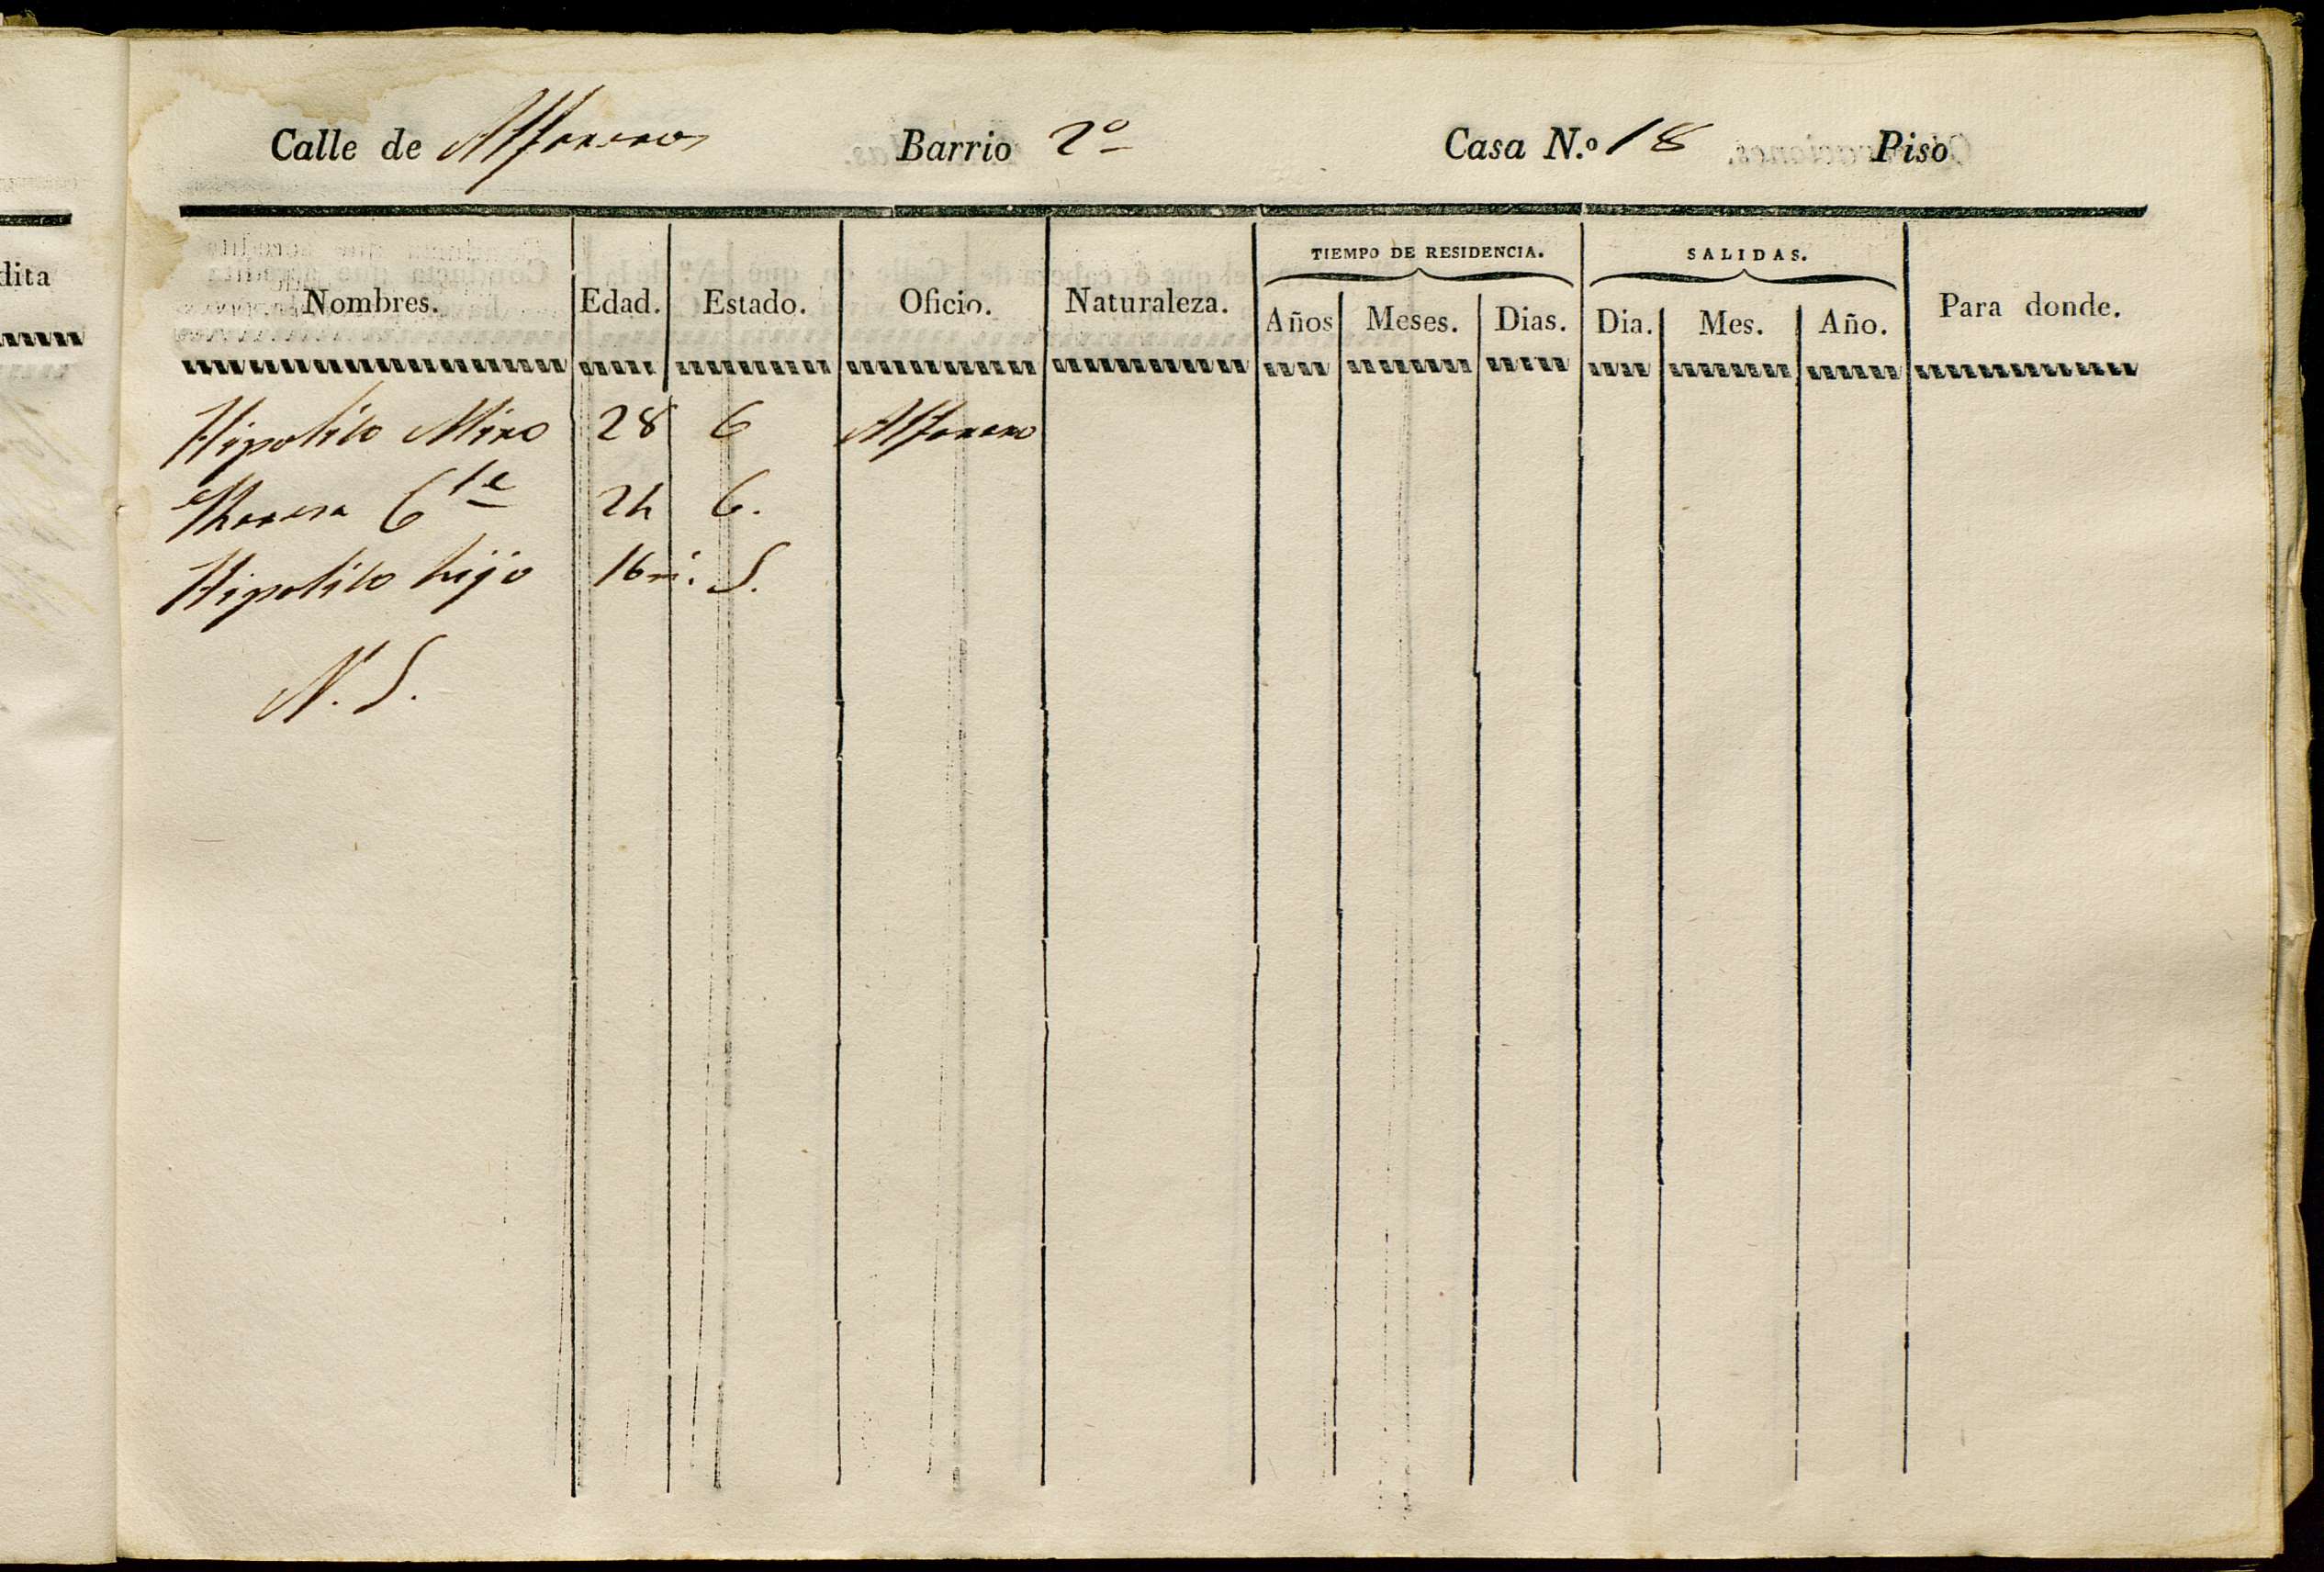 dita
Calle de Alfareros Barrio 2º Casa N.º 18 Piso
TIEMPO DE RESIDENCIA. SALIDAS.
Nombres. Edad. Estado. Oficio. Naturaleza. Años Meses. Dias. Dia. Mes. Año. Para donde.
Hipolito Miro 28 C Alfarero
Theresa Cte 24 C.
Hipolito hijo 16 m. S.
N. S.